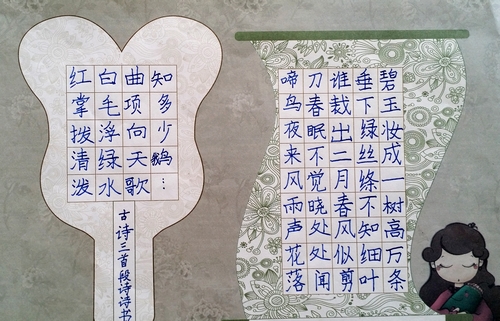 碧玉妆成一树高万条
垂下绿丝绦不知细叶
谁裁出二月春风似剪
刀春眠不觉晓处处闻
啼鸟夜来风雨声花落
知多少鹅⋮
曲项向天歌
白毛浮绿水
红掌拨清泼
古诗三首段诗诗书